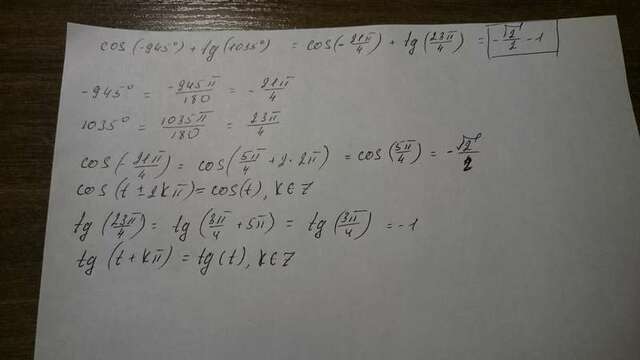 cos(-945°) + tg(1035°) = cos(-21π/4) + tg(23π/4) = -√2/2 - 1
-945° = -945π/180 = -21π/4
1035° = 1035π/180 = 23π/4
cos(-21π/4) = cos(5π/4 + 2·2π) = cos(5π/4) = -√2/2
cos(t ± 2kπ) = cos(t), k∈Z
tg(23π/4) = tg(3π/4 + 5π) = tg(3π/4) = -1
tg(t + kπ) = tg(t), k∈Z